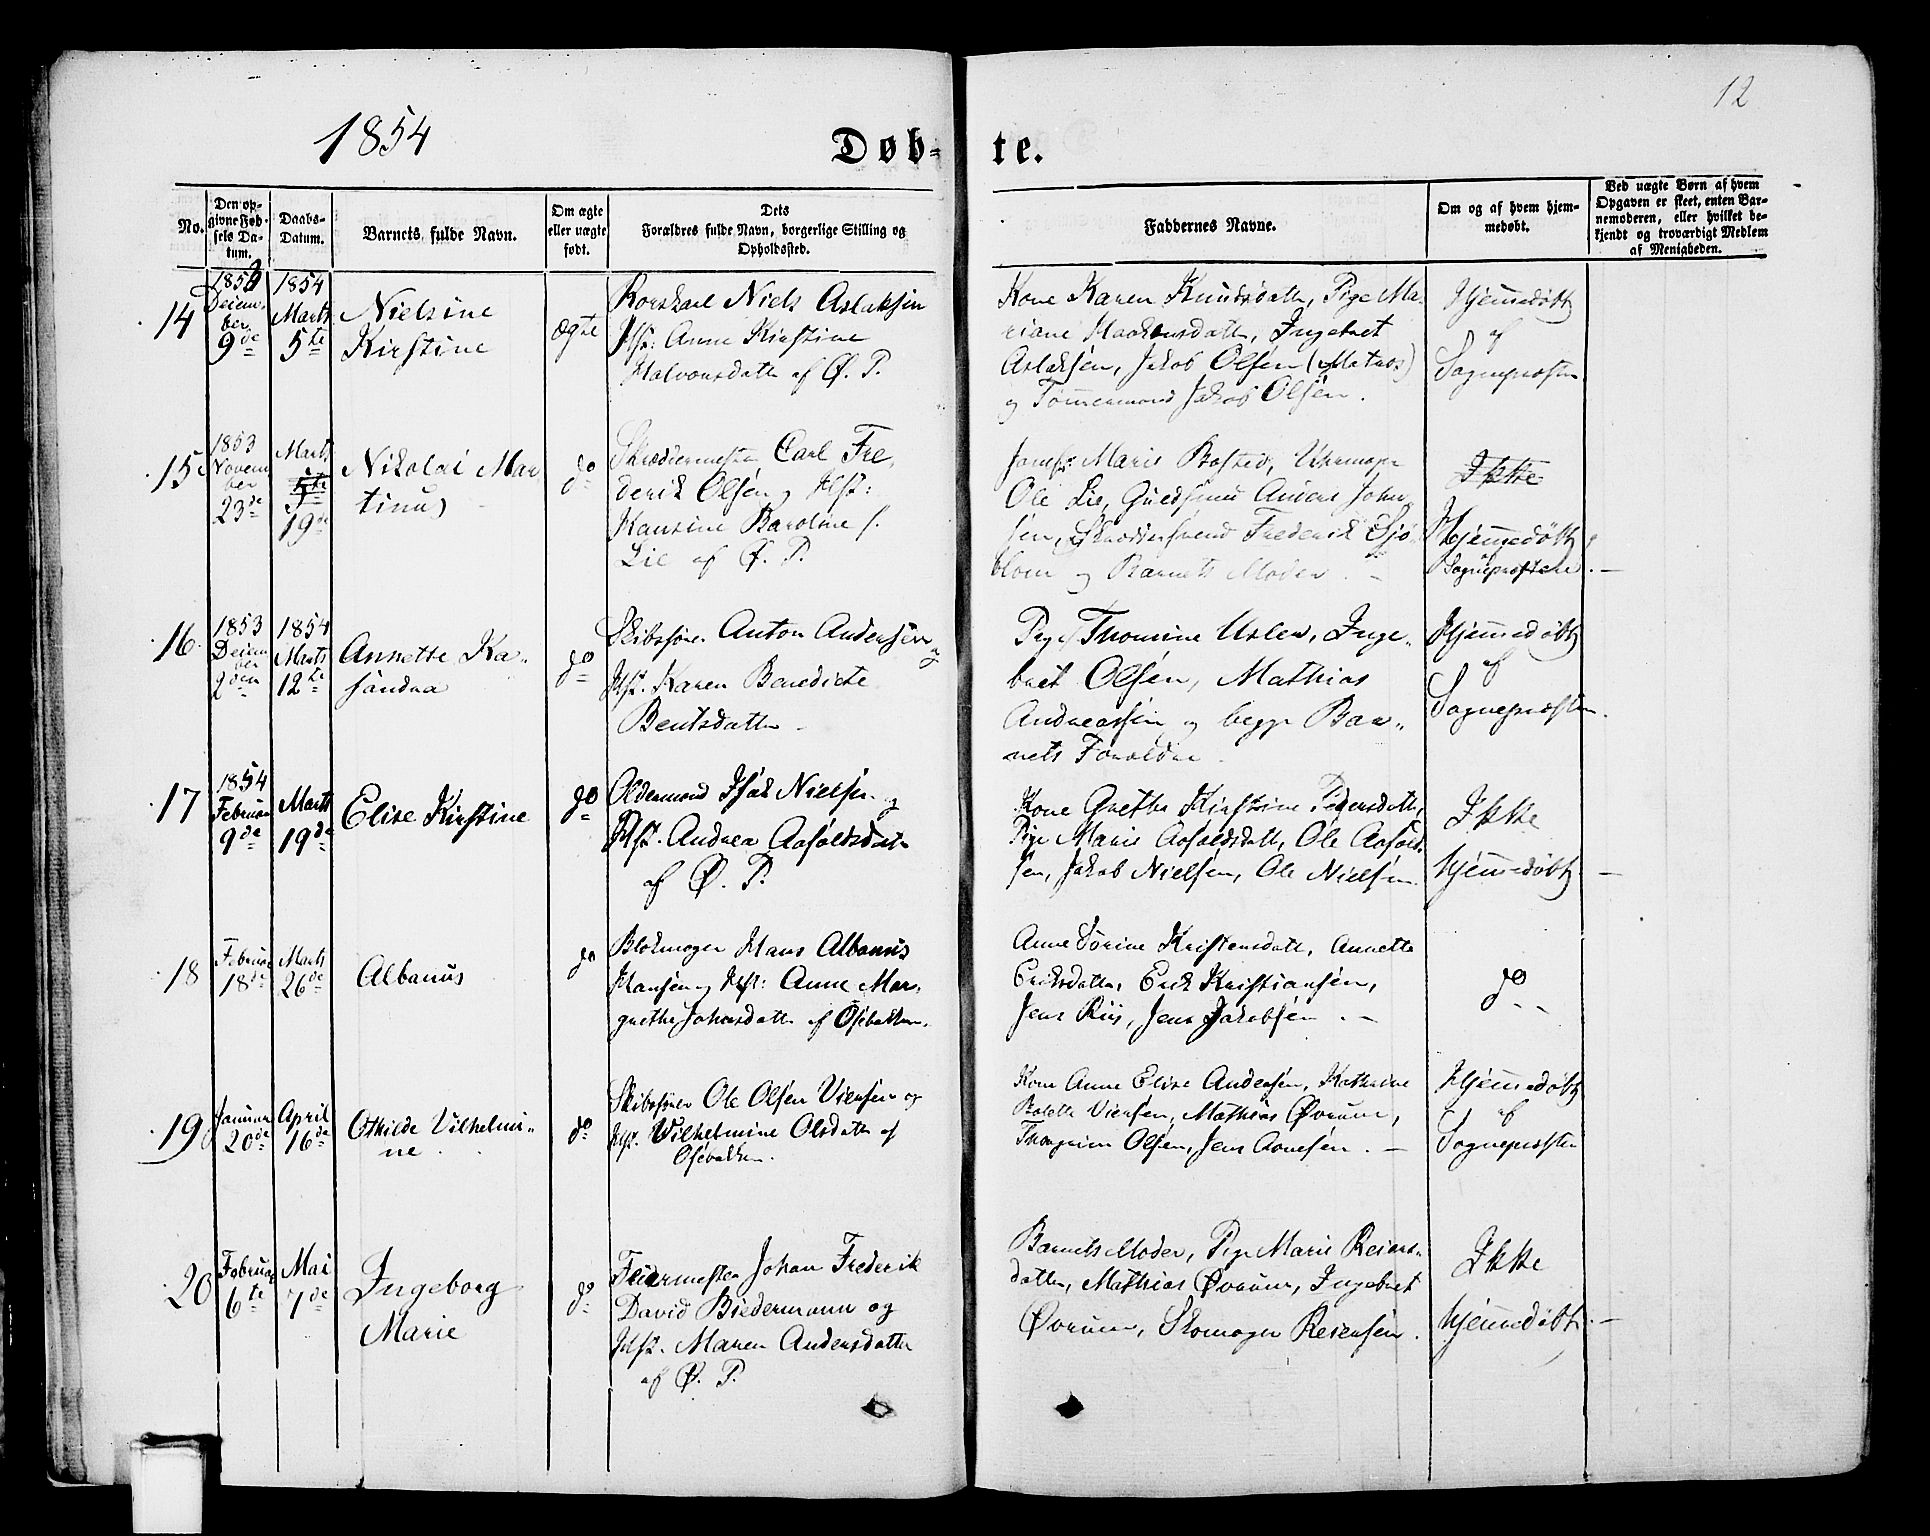 12
1854
Døb-
te.
No.
Den op-
givne Fød-
sels Da-
tum.
Daabs-
Datum.
Barnets fulde Navn.
Om ægte
eller uægte
født.
Dets
Forældres fulde Navn, borgerlige Stilling og
Opholdssted.
Faddernes Navne.
Om og af hvem hjem-
medøbt.
Ved uægte Børn af hvem
Opgaven er skeet, enten Bar-
nemoderen, eller hvilket be-
kjendt og troværdigt Medlem
af Menigheden.
14
1853
Decem
ber
9de
1854
Marts
5te
Nielsine
Kirstine
Ægte
Niels Aslaksen
Hst: Anne Kirstine
Halvorsdatter af Ø. P.
Kone Karen Knudsdatter, Pige Ma-
riane Haakensdatter, Ingebret
Aslaksen, Jakob Olsen (Matros)
og Tømmermand Jakob Olsen.
Hjemmedøbt
af
Sognepræsten
15
1853
Novem
ber
23de
Marts
5te
19de
Nikolai Mar
tinus
do
Skrædermester Carl Fre-
derik Olsen og Hst:
Karoline f.
Lie af Ø. P.
Jomf: Marie Bosted, Uhrmager
Ole Lie, Guldsmed Anders John-
sen, Skrædersvend Frederik Sjø-
blom og Barnets Moder. -
Ikke
Hjemmedøbt
af
Sognepræsten. -
16.
1853
Decem
ber
2den
1854
Marts
12te
Annette Ka-
sandra
do
Skibsfører Anton Andersen og
Hst. Karen Benedicte
Bentsdatter -
Pige Thomine Usler, Inge-
bret Olsen, Mathias
Andreassen og begge Bar-
nets Forældre.
Hjemmedøbt
af
Sognepræsten.
17
1854
Februar
9de
Marts
19de
Elise Kirstine
do
Oldermand Isak Nielsen og
Hst. Andrea Asfoldsdatter
af Ø. P.
Kone Grethe Kirstine Pedersdatter,
Pige Marie Asfoldsdatt, Ole Asfold-
sen, Jakob Nielsen, Ole Nielsen.
Ikke
Hjemmedøbt -
18
Februar
18de
Marts
26de
Albanus
do
Blokmager Hans Albanus
Hansen og Hst: Anne Mar-
grethe Johnsdatter af Osebakken.
Anne Sørine Kristensdatt, Annette
Eriksdatter, Erik Kristiansen,
Jens Riis, Jens Jakobsen. -
do -
19
Januar
20de
April
16de
Othilde Vilhelmi-
ne.
do
Skibsfører Ole Olsen Viersen og
Hst. Wilhelmine Olsdatter af
Osebakken.
Kone Anne Elise Andersen, Kathrine
Bolette Viersen, Mathias Øvrum,
Olsen, Jens Arnesen. -
Hjemmedøbt
af
Sognepræsten
20
Februar
6te
Mai
7de
Ingeborg
Marie
do
Feiermester Johan Frederik
David Biedermann og
Hst. Maren Andersdatter
af Ø. P.
Barnets Moder, Pige Marie Reiers-
datter, Mathias Øvrum, Ingebret
Øvrum, Skomager Reiersen.
Ikke
Hjemmedøbt. -